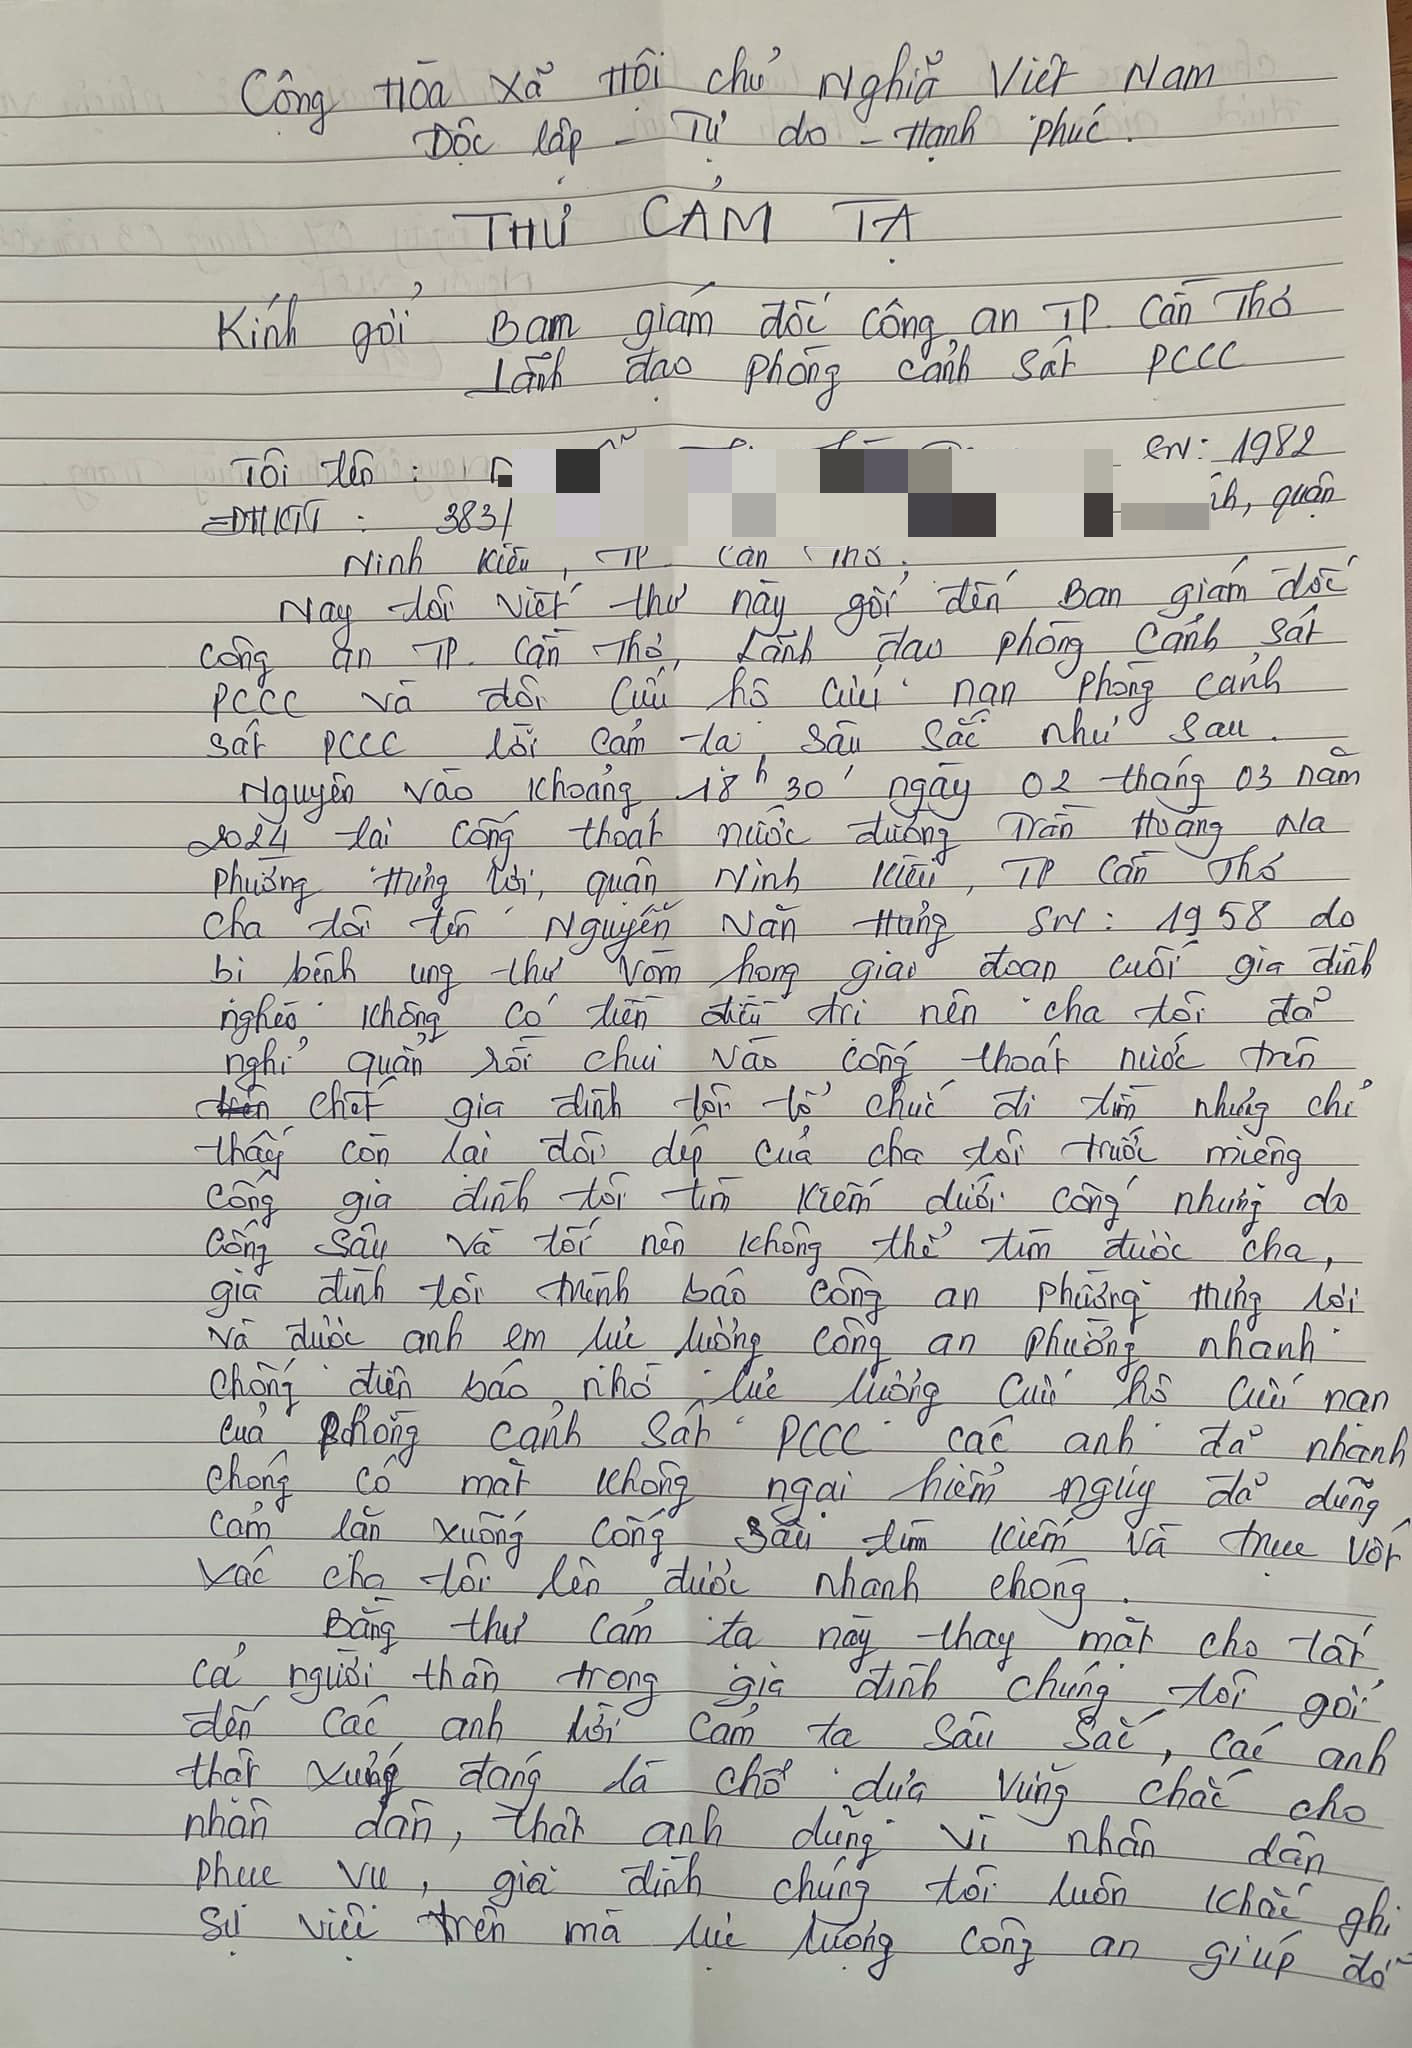 Cộng Hòa Xã Hội Chủ Nghĩa Việt Nam
Độc lập - Tự do - Hạnh phúc.
THƯ CẢM TẠ
Kính gởi Bam giám đốc Công an TP. Cần Thơ
Lãnh đạo phòng cảnh sát PCCC
Tôi tên : SN: 1982
ĐHKTT : 383/ quận
Ninh Kiều, TP Cần Thơ.
Nay tôi viết thư này gởi đến Ban giám đốc
công an TP. Cần Thơ, Lãnh đạo phòng Cảnh sát
PCCC và đội Cứu hộ Cứu nạn Phòng cảnh
sát PCCC lời cảm tạ sâu sắc như sau.
Nguyên vào khoảng 18h30' ngày 02 tháng 03 năm
2024 tại cống thoát nước đường Trần Hoàng Na
Phường Hưng Lợi, quận Ninh Kiều, TP Cần Thơ
Cha tôi tên Nguyễn Văn Hưng SN: 1958 do
bị bệnh ung thư vòm họng giai đoạn cuối gia đình
nghèo không có tiền điều trị nên cha tôi đã
nghỉ quẩn rồi chui vào cống thoát nước trên
trên chết gia đình tôi tổ chức đi tìm nhưng chỉ
thấy còn lại đôi dép của cha tôi trước miệng
cống gia đình tôi tìm kiếm dưới cống nhưng do
cống sâu và tối nên không thể tìm được cha,
gia đình tôi trình báo công an phường Hưng Lợi
và được anh em lực lượng công an phường nhanh
chóng điện báo nhờ lực lượng cứu hộ cứu nạn
của phòng cảnh sát PCCC các anh đã nhanh
chóng có mặt không ngại hiểm nguy đã dũng
cảm lặn xuống cống sâu tìm kiếm và trục vớt
xác cha tôi lên được nhanh chóng.
Bằng thư cảm tạ này thay mặt cho tất
cả người thân trong gia đình chúng tôi gởi
đến các anh lời cảm tạ sâu sắc, các anh
thật xứng đáng là chổ dựa vững chắc cho
nhân dân, thật anh dũng vì nhân dân
phục vụ, gia đình chúng tôi luôn khắc ghi
sự việc trên mà lực lượng công an giúp đở